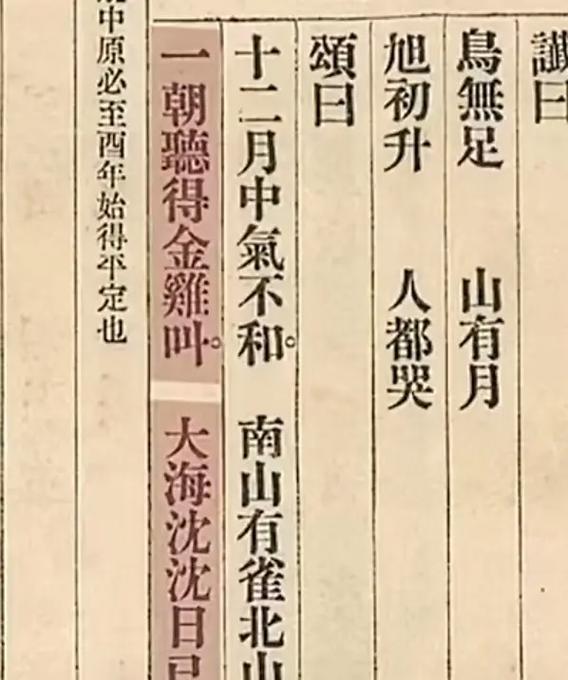 讖曰
鳥無足　山有月
旭初升　人都哭
頌曰
十二月中氣不和。南山有雀北山
一朝聽得金雞叫。大海沈沈日已
中原必至酉年始得平定也